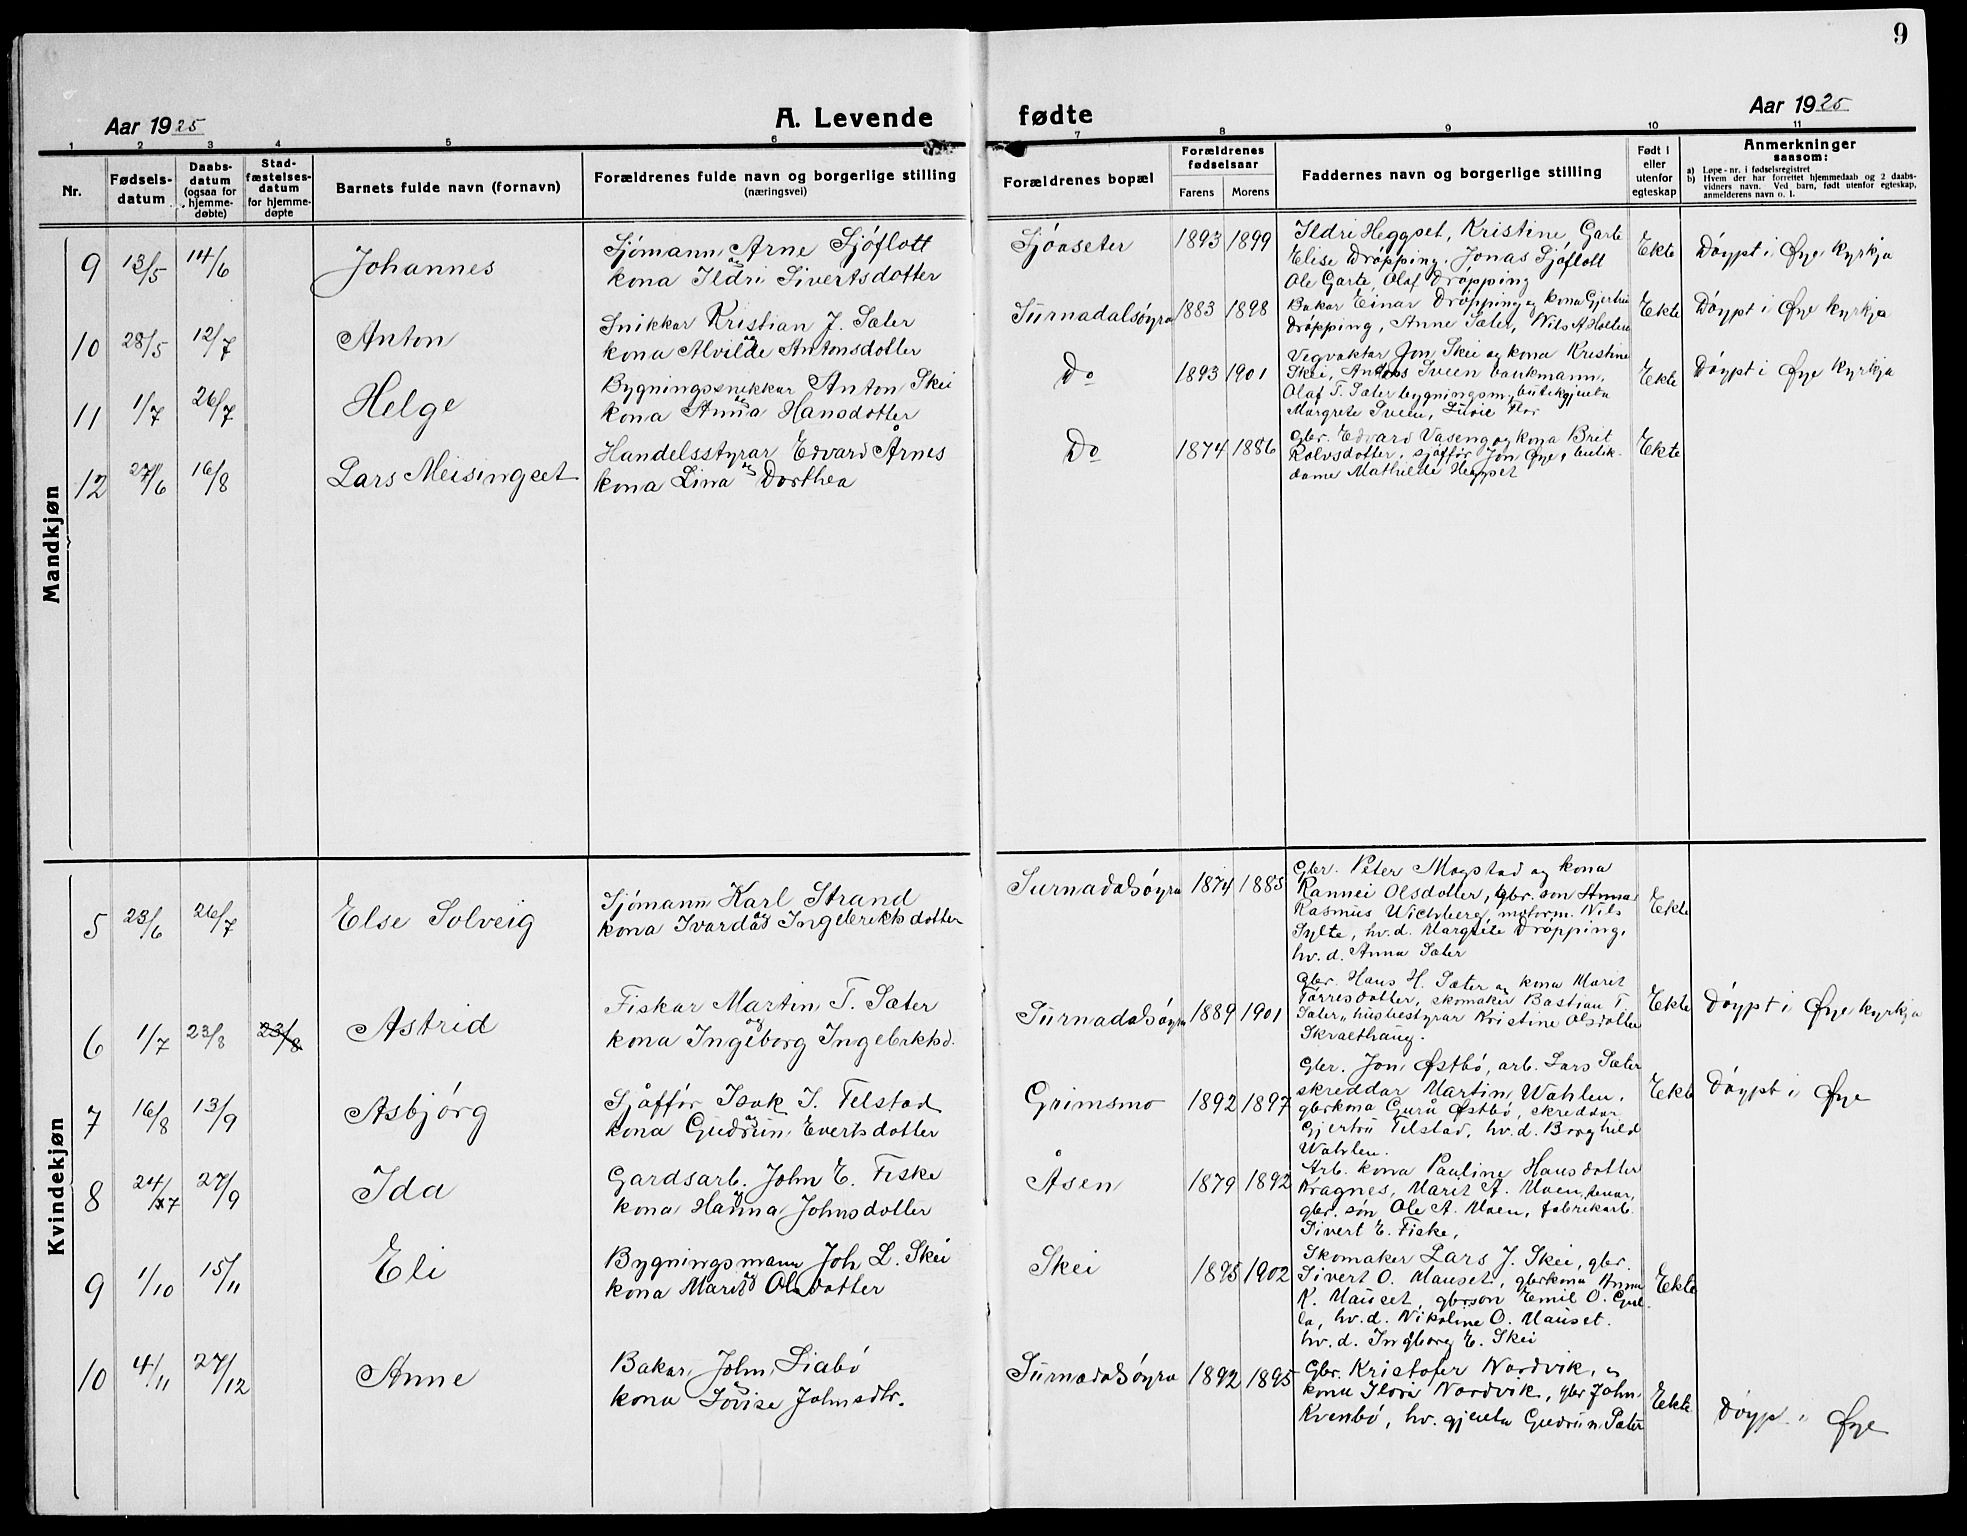 9
Aar 1925
A. Levende fødte
Aar 1925
1 2 3 4 5 6 7 8 9 10 11
Nr.
Fødsels-
datum
Daabs-
datum
(ogsaa for
hjemme-
døbte)
Stad-
fæstelses-
datum
for hjemme-
døpte
Barnets fulde navn (fornavn)
Forældrenes fulde navn og borgerlige stilling
(næringsvei)
Forældrenes bopæl
Forældrenes
fødselsaar
Farens Morens
Faddernes navn og borgerlige stilling
Født i
eller
utenfor
egteskap
Anmerkninger
saasom:
a) Løpe-nr. i fødselsregistret
b) Hvem der har forrettet hjemmedaab og 2 daabs-
vidners navn. Ved barn, født utenfor egteskap,
anmelderens navn o. l.
Mandkjøn
9 13/5 14/6 Johannes
Sjømann Arne Sjøflott
og
kona Ildri Sivertsdotter
Sjøaseter 1893 1899
Ildri Heggset, Kristine Garte
Elise Drøpping, Jonas Sjøflott
Ole Garte, Olaf Drøpping
Ekte Døypt i Øye kyrkja
10 28/5 12/7 Anton
Snikkar Kristian J. Sæter
og
kona Alvilde Antonsdotter
Surnadalsøyra 1883 1898
Bakar Einar Drøpping og kona Gjertru
Drøpping, Anne Sæter, Nils A Holten
Ekte Døypt i Øye kyrkja
11 1/7 26/7 Helge
Bygningssnekkar Anton Skei
og
kona Anna Hansdotter
Do 1893 1901
Vegvaktar Jon Skei og kona Kristine
Skei, Anders Sveen bankmann,
Olaf T. Sæter bygningsm, butikgjenta
Margrete Sveen, Flor
Ekte Døypt i Øye kyrkja
12 27/6 16/8 Lars Meisingset
Handelsstyrar Edvard Årnes
og
kona Lina Dorthea
Do 1874 1886
gbr. Edvard Vaseng og kona Brit
Rolvsdotter, sjåffør Jon Øye, butik-
dame Mathilde Heggset
Ekte
Kvindekjøn
5 23/6 26/7 Else Solveig
Sjømann Karl Strand
og
kona Ivarda Ingebriktsdotter
Surnadalsøyra 1874 1885
Gbr. Peter Mogstad og kona
Rannei Olsdotter, gbr. son
Rasmus Wichberg, motorm. Nils
Sylte, hv.d. Margrete Drøpping,
hv. d. Anna Sæter
Ekte
6 1/7 23/8 23/8 Astrid
Fiskar Martin T. Sæter
og
kona Ingeborg Ingebriktsd.
Surnadalsøyra 1889 1901
gbr. Hans H. Sæter og kona Marit
Torresdotter, skomaker Bastian T
Sæter, husbestyrar Kristine Olsdotter
Skralthaug.
Ekte Døypt i Øye kyrkja
7 16/8 13/9 Asbjörg
Sjåffør Isak I. Telstad
og
kona Gudrun Evertsdotter
Grimsmo 1892 1897
Gbr. Jon Østbø, arb. Lars Sæter
skreddar Martin Wahlen,
gbrkona Guru Østbø, skreddar
Gjertru Telstad, hv.d. Borghild
Wahlen.
Ekte Døypt i Øye
8 24/7 27/9 Ida
Gardsarb. John E. Fiske
og
kona Hanna Johnsdotter
Åsen 1879 1892
Arb. kona Pauline Hansdotter
Kragnes, Marit A. Moen, tenar,
gbr. søn Ole A. Moen, fabrikarb.
Sivert E. Fiske,
9 1/10 15/11 Eli
Bygningsmann Joh L. Skei
og
kona Marit Olsdotter
Skei 1895 1902
Skomaker Lars J. Skei, gbr.
Sivert O. Mauset, gbrkona Anna
K. Mauset, gbrson Emil O. Gul-
la, hv.d. Nikoline O. Mauset.
hv. d. Ingborg E. Skei
Ekte
10 4/11 27/12 Anne
Bakar John Siabø
og
kona Lovise Johnsdtr.
Surnadalsøyra 1892 1895
Gbr. Kristofer Nordvik, og
kona Ildri Nordvik, gbr John
Kvenbø, hv. gjenta Gudrun Sæter
Ekte Døyp. i Øye